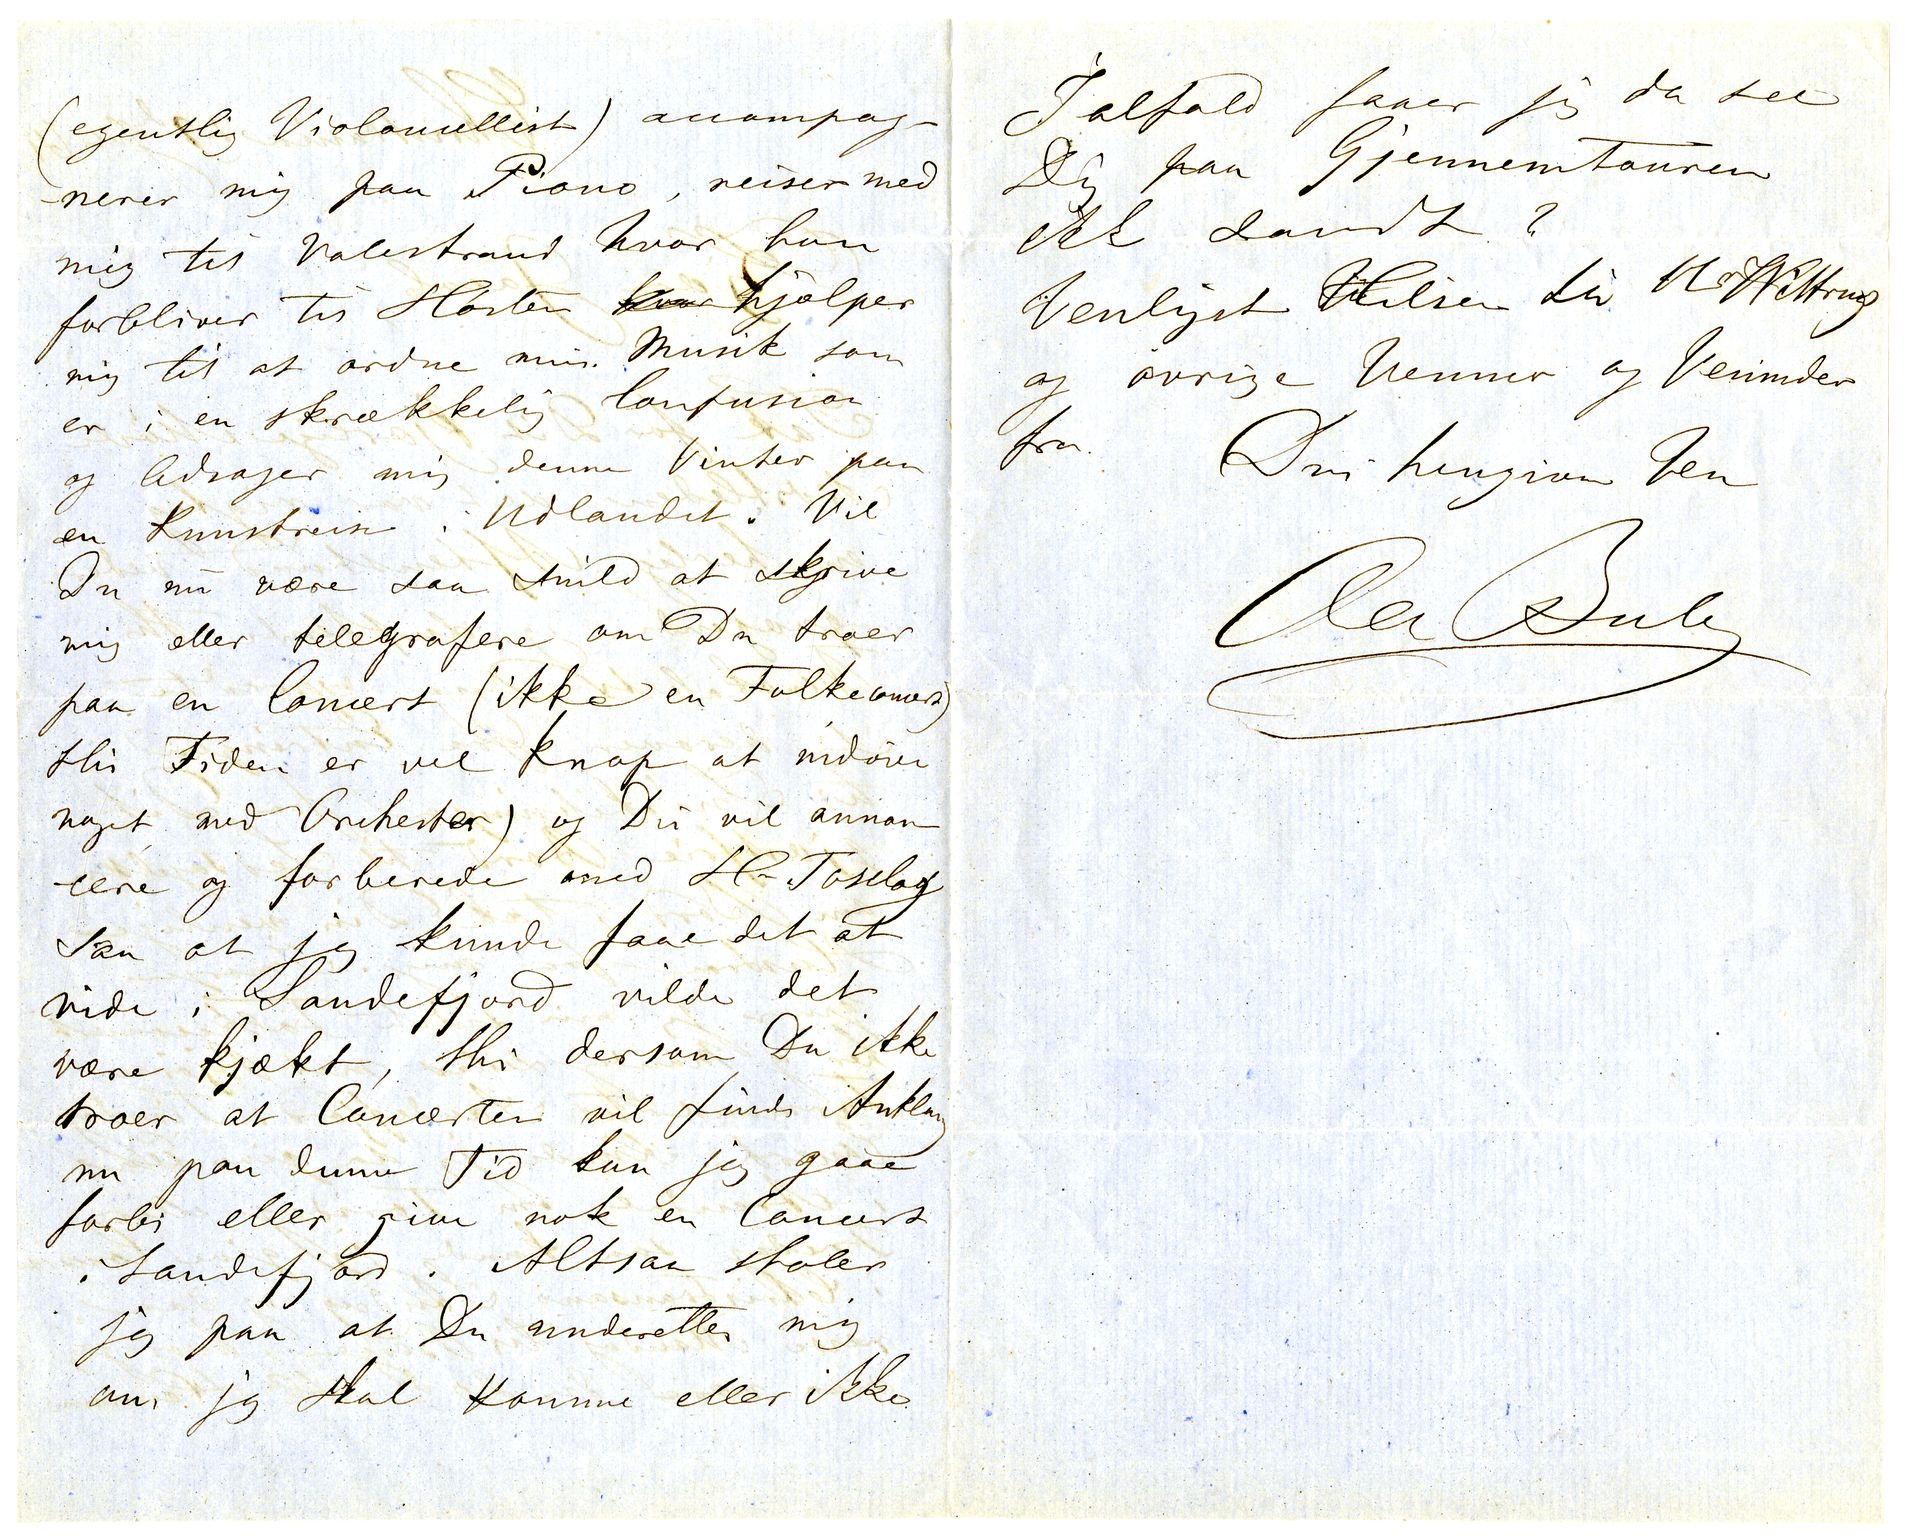 (egentlig Violoncellist) accompag-
nerer mig paa Piano, reiser med
mig til Valestrand hvor han
forbliver til Høsten hvor hjælper
mig til at ordne min Musik som
er i en skrækkelig Confusion
og ledsager mig denne Vinter paa
en Kunstreise i Udlandet. Vil
Du nu være saa snild at skrive
mig eller telegrafere om Du troer
paa en Concert (ikke en Folkeconcert)
thi Tiden er vel knap at indøve
noget med Orchester) og Du vil annon-
cere og forberede med Hr
Saa at jeg kunde faae det at
vide i Sandefjord vilde det
være kjækt, thi dersom Du ikke
troer at Concerten vil finde Anklang
nu paa denne Tid kan jeg gaae
forbi eller give nok en Concert
i Sandefjord. Altsaa stoler
jeg paa at Du underetter mig
om jeg skal komme eller ikke
Ialfald faaer jeg da see
Dig paa Gjennemtouren
ikke sandt?
Venligst Hilsen til Hr Wittrup
og øvrige Venner og Veninder
fra
Din hengivne Ven
Ole Bull